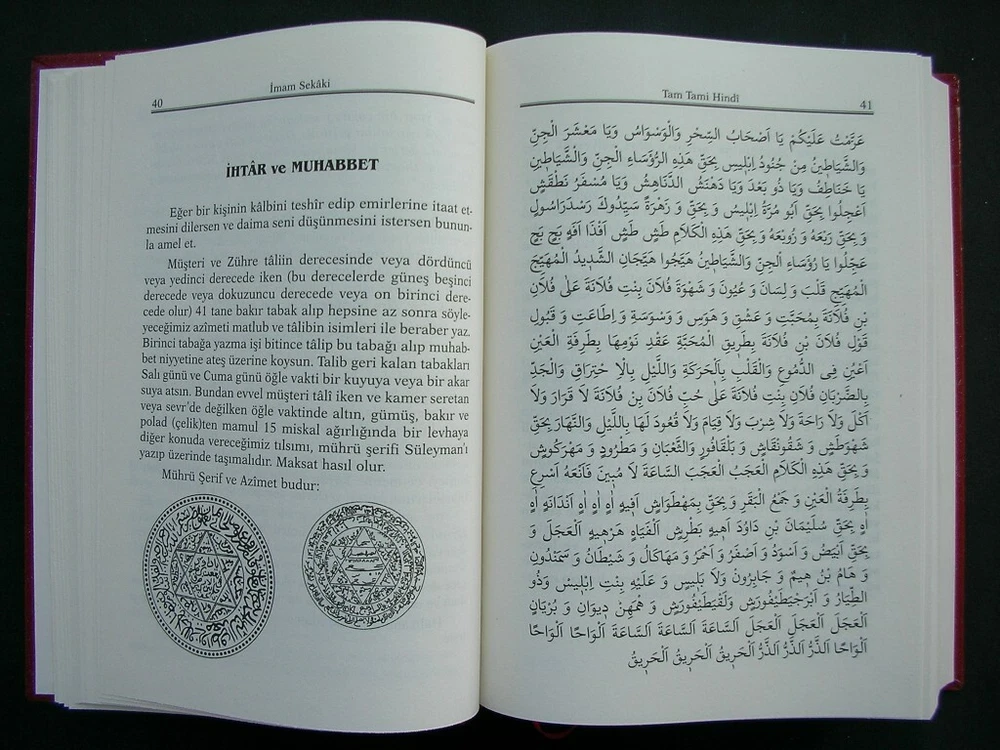 40
İmam Sekâki
İHTÂR ve MUHABBET
Eğer bir kişinin kâlbini teshîr edip emirlerine itaat et-
mesini dilersen ve daima seni düşünmesini istersen bunun-
la amel et.
Müşteri ve Zühre tâliin derecesinde veya dördüncü
veya yedinci derecede iken (bu derecelerde güneş beşinci
derecede veya dokuzuncu derecede veya on birinci dere-
cede olur) 41 tane bakır tabak alıp hepsine az sonra söyle-
yeceğimiz azîmeti matlub ve tâlibin isimleri ile beraber yaz.
Birinci tabağa yazma işi bitince tâlip bu tabağı alıp muhab-
bet niyyetine ateş üzerine koysun. Talib geri kalan tabakları
Salı günü ve Cuma günü öğle vakti bir kuyuya veya bir akar
suya atsın. Bundan evvel müşteri tâli iken ve kamer seretan
veya sevr'de değilken öğle vaktinde altın, gümüş, bakır ve
polad (çelik)ten mamul 15 miskal ağırlığında bir levhaya
diğer konuda vereceğimiz tılsımı, mührü şerifi Süleyman'ı
yazıp üzerinde taşımalıdır. Maksat hasıl olur.
Mührü Şerif ve Azîmet budur:
Tam Tami Hindî
41
عَزَّمْتُ عَلَيْكُمْ يَا اَصْحَابُ السِّحْرِ وَالْوَسْوَاسُ وَيَا مَعْشَرَ الْجِنِّ
وَالشَّيَاطِينُ مِنْ جُنُودُ اِبْلِيسَ بِحَقِّ هَذِهِ الرُّؤَسَاءِ الْجِنِّ وَالشَّيَاطِينِ
يَا خَنَاطِفُ وَيَا ذُو بَعَدَ وَيَا دَهْنَشُ الدَّنَاهِشُ وَيَا مُسْفَرُ نَطْقَشٍ
اَعْجِلُوا بِحَقِّ اَبُو مُرَّةُ اِبْلِيسُ وَ بِحَقِّ وَ زَهْرَةُ سَيِّدُوكَ رَسْدَرَاسُولٍ
وَ بِحَقِّ رَبَعَهُ وَ زُوبَعَهُ وَ بِحَقِّ هَذِهِ الْكَلَامِ طَشٍ طَشٍ اَفَدًا اَفَهٍ بَجٍ بَجٍ
عَجِّلُوا يَا رُؤَسَاءِ الْجِنِّ وَالشَّيَاطِينُ هَيِّجُوا هَيَجَانِ الشَّدِيدُ الْمُهَيِّجُ
الْمُهَيِّجِ قَلْبَ وَ لِسَانَ وَ عُيُونَ وَ شَهْوَةً فُلَانَ بِنْتِ فُلَانَةَ عَلَى فُلَانِ
بْنِ فُلَانَةَ بِمُحَبَّتِ وَ عَشْقٍ وَ هَوَسٍ وَ وَسْوَسَةٍ وَ اِطَاعَتِ وَ قَبُولِ
قَوْلِ فُلَانَ بْنِ فُلَانَةَ بِطَرِيقِ الْمُحَبَّةِ عَقْدِ نَوْمِهَا بِطَرْفَةِ الْعَيْنِ
اَعْيُنِ فِى الدُّمُوعِ وَالْقَلْبِ بِالْحَرَكَةِ وَاللَّيْلِ بِالْاِ حْتِرَاقِ وَالْجَدِّ
بِالضَّرْبَانِ فُلَانَ بِنْتِ فُلَانَةَ عَلَى حُبِّ فُلَانَ بْنِ فُلَانَةَ لَا قَرَارَ وَلَا
اَكْلَ وَلَا رَاحَةً وَلَا شِرْبَ وَلَا قِيَامَ وَلَا قُعُودَ لَهَا بِاللَّيْلِ وَالنَّهَارِ بِحَقِّ
شَهْوَطَشٍ وَ شَقُونَقَاشٍ وَ بَلْقَافُورٍ وَالثَّعْبَانِ وَ مَطْرُودٍ وَ مَهْرَكُوشٍ
وَ بِحَقِّ هَذِهِ الْكَلَامِ الْعَجَبُ الْعَجَبُ السَّاعَةَ لَا مُبِينَ فَاَنْعَهُ اَسْرَعِ
بِطَرْفَةُ الْعَيْنِ وَ جَمْعُ الْبَقَرِ وَ بِحَقِّ بِمَهْطَوَاشٍ اَفِيهِ اَهٍ اَهٍ اَهٍ اَنْدَانَهِ اَهٍ
اَهٍ بِحَقِّ سُلَيْمَانَ بْنِ دَاوُدَ اَهِيهٍ بَطْرِشٍ اَلْفَيَاهِ هَرَهِيهِ اَلْعَجَلَ وَ
بِحَقِّ اَبْيَضُ وَ اَسْوَدُ وَ اَصْفَرُ وَ اَحْمَرُ وَ مَهَاكَالُ وَ شَيْطَانُ وَ سَمَنْدُونٍ
وَ هَامُ بْنُ هِيمُ وَ جَابِرُونَ وَلَا بَلِيسٍ وَ عَلَيْهِ بِنْتِ اِبْلِيسَ وَذُو
الطَّيَّارُ وَ اَبْرَجَيْطِيفُورَشٍ وَلَقَيْطِيفُورَشٍ وَ هَمْهِنَ دِيوَانٍ وَ بُرْيَانٍ
اَلْعَجَلَ اَلْعَجَلَ اَلْعَجَلَ اَلسَّاعَةَ اَلسَّاعَةَ اَلسَّاعَةَ اَلْوَاحًا اَلْوَاحًا
اَلْوَاحًا اَلذَّرُّ اَلذَّرُّ اَلذَّرُّ اَلْحَرِيقُ اَلْحَرِيقُ اَلْحَرِيقُ